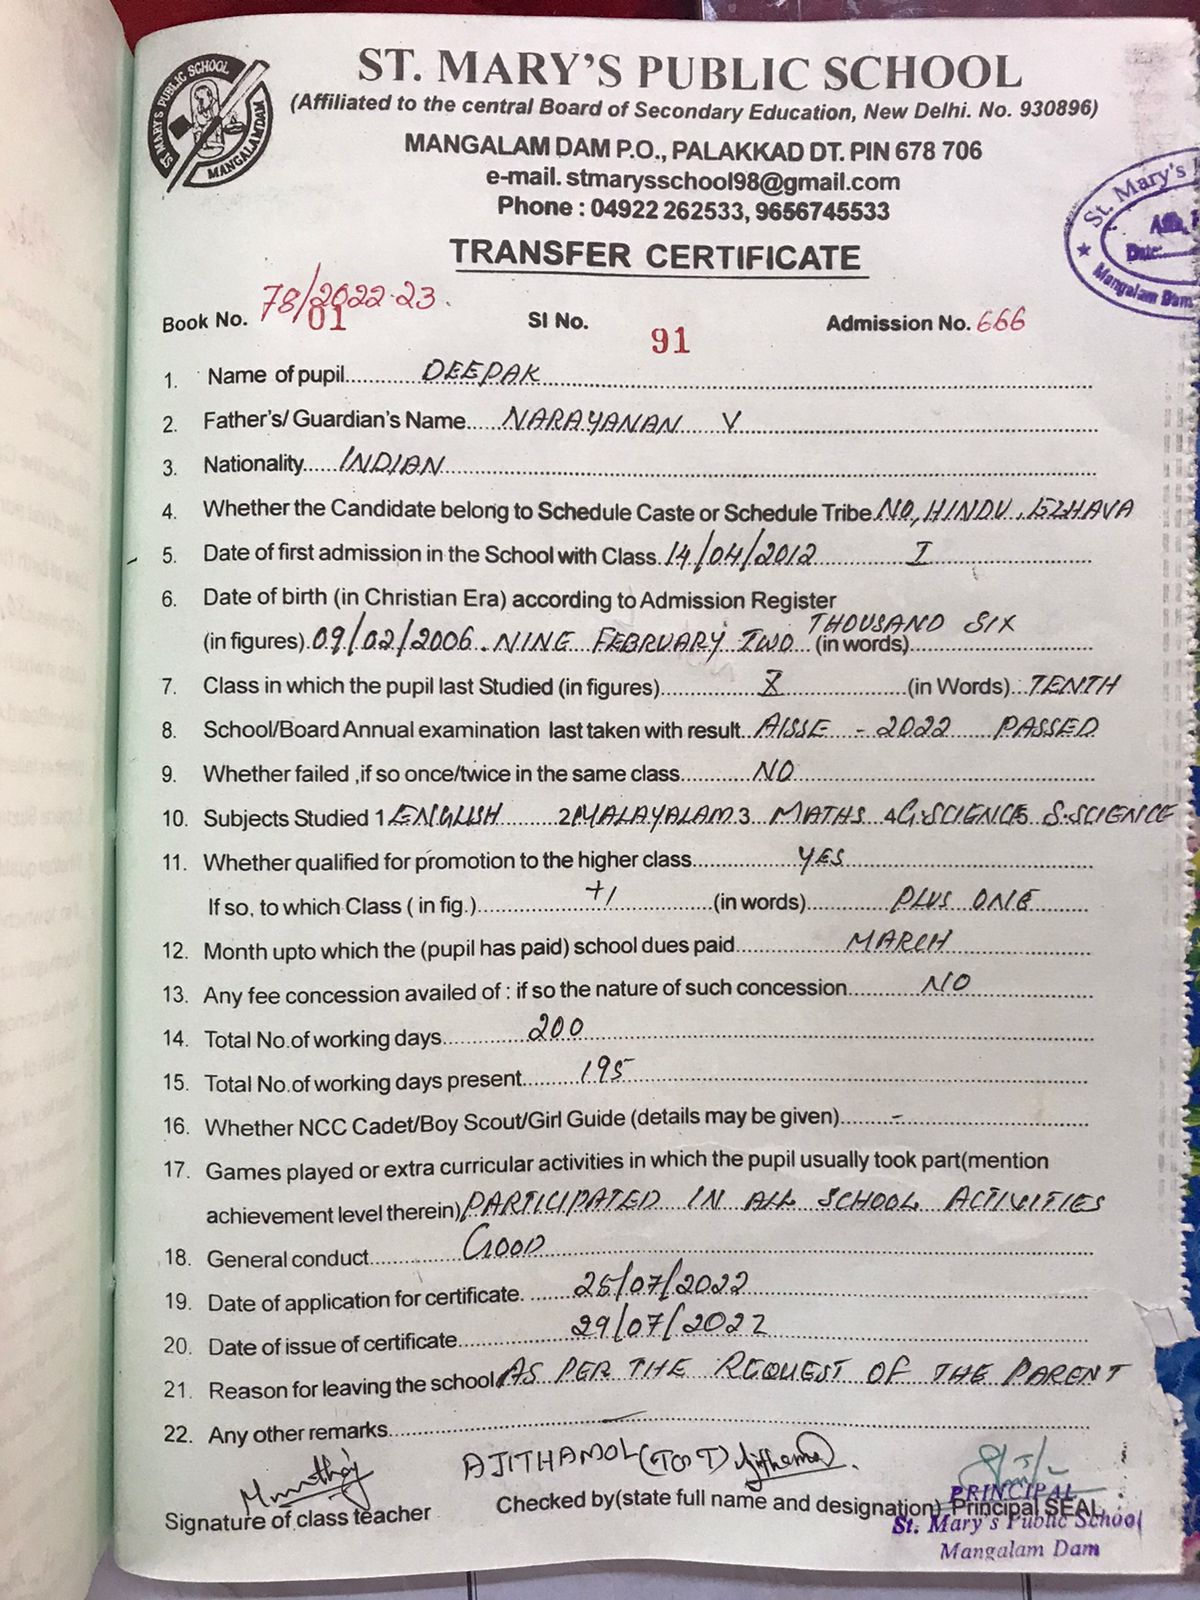 ST. MARY'S PUBLIC SCHOOL
(Affiliated to the central Board of Secondary Education, New Delhi. No. 930896)
MANGALAM DAM P.O., PALAKKAD DT. PIN 678 706
e-mail. stmarysschool98@gmail.com
Phone : 04922 262533, 9656745533
ST MARY'S PUBLIC SCHOOL
MANGALAMDAM
St. Mary's
Affn.
Date:
Mangalam Dam
TRANSFER CERTIFICATE
78/2022-23
Book No. 01 SI No. 91 Admission No. 666
1. Name of pupil DEEPAK
2. Father's/ Guardian's Name NARAYANAN V
3. Nationality INDIAN
4. Whether the Candidate belong to Schedule Caste or Schedule Tribe NO, HINDU, EZHAVA
5. Date of first admission in the School with Class 14/04/2012 I
6. Date of birth (in Christian Era) according to Admission Register
THOUSAND SIX
(in figures) 09/02/2006. NINE FEBRUARY TWO (in words)
7. Class in which the pupil last Studied (in figures) X (in Words) TENTH
8. School/Board Annual examination last taken with result AISSE - 2022 PASSED
9. Whether failed ,if so once/twice in the same class NO
10. Subjects Studied 1 ENGLISH 2 MALAYALAM 3 MATHS 4 G.SCIENCE 5 S.SCIENCE
11. Whether qualified for promotion to the higher class YES
If so, to which Class ( in fig.) +1 (in words) PLUS ONE
12. Month upto which the (pupil has paid) school dues paid MARCH
13. Any fee concession availed of : if so the nature of such concession NO
14. Total No.of working days 200
15. Total No.of working days present 195
16. Whether NCC Cadet/Boy Scout/Girl Guide (details may be given) -
17. Games played or extra curricular activities in which the pupil usually took part(mention
achievement level therein) PARTICIPATED IN ALL SCHOOL ACTIVITIES
18. General conduct GOOD
19. Date of application for certificate. 25/07/2022
20. Date of issue of certificate 29/07/2022
21. Reason for leaving the school AS PER THE REQUEST OF THE PARENT
22. Any other remarks —
AJITHAMOL (TGT)
Signature of class teacher Checked by(state full name and designation) Principal SEAL
PRINCIPAL
St. Mary's Public School
Mangalam Dam